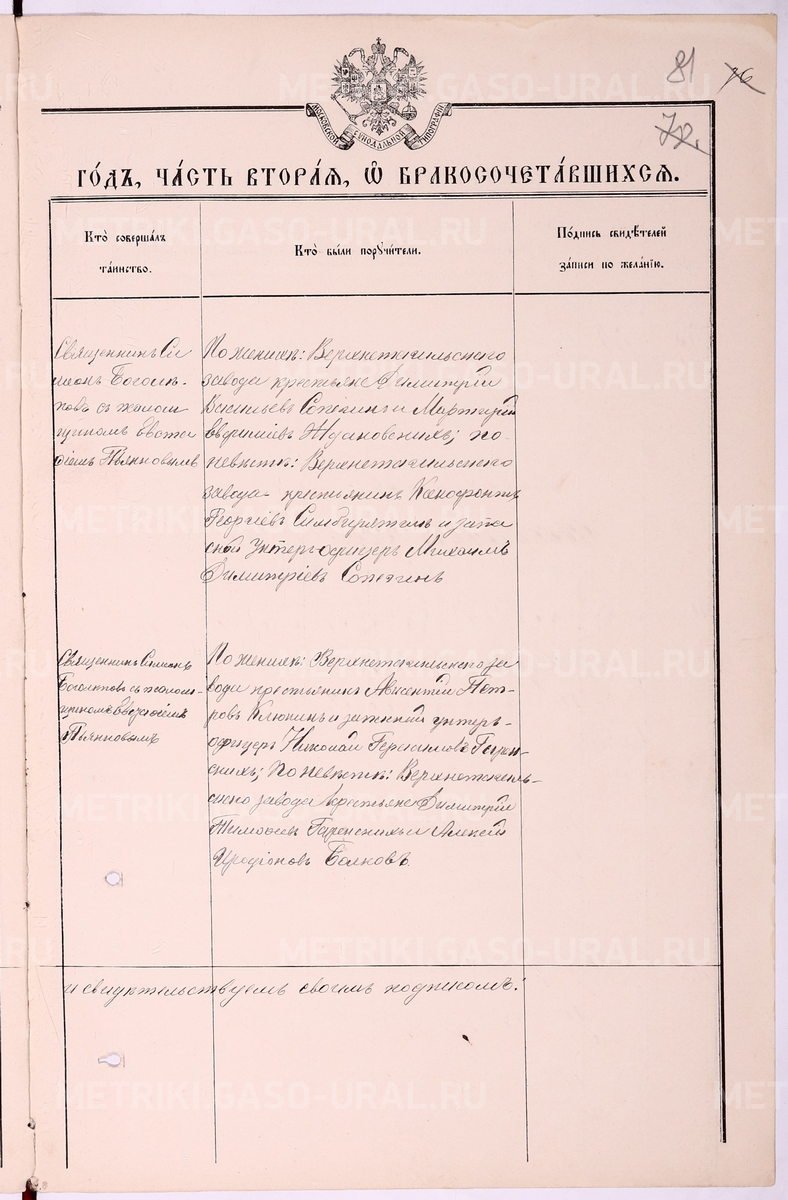 81
76
72.
МОСКОВСКОЙ СѴНОДАЛЬНОЙ ТИПОГРАФІИ
ГО́ДЪ, ЧА́СТЬ ВТОРА́Я, Ѡ҆ БРАКОСОЧЕТА́ВШИХСЯ.
Кто̀ соверша́лъ
та́инство.
Кто̀ бы́ли поручи́тели.
По́дпись свидѣ́телей
за́писи по жела́нію.
Священникъ Си
меонъ Боголѣ-
повъ съ псалом
щикомъ
Пьянковымъ
По женихѣ: Верхнетагильскаго
завода крестьяне Димитрій
Васильевъ и
Ждановскихъ; по
невѣстѣ: Верхнетагильскаго
завода крестьянинъ Ксенофонтъ
Георгіевъ и запа
сной унтеръ-офицеръ Михаилъ
Димитріевъ
Священникъ Симеонъ
Боголѣповъ съ псалом-
щикомъ
Пьянковымъ
По женихѣ: Верхнетагильскаго за
вода крестьянинъ Авксентій Пет-
ровъ Клюкинъ и запасный унтеръ-
офицеръ Николай Герасимовъ Гарен-
скихъ; По невѣстѣ: Верхнетагиль-
скаго завода крестьяне Димитрій
Тимофеевъ Гаренскихъ и Алексій
Иродіоновъ Волковъ.
и свидѣтельствуемъ своимъ подписомъ:
METRIKI.GASO-URAL.RU